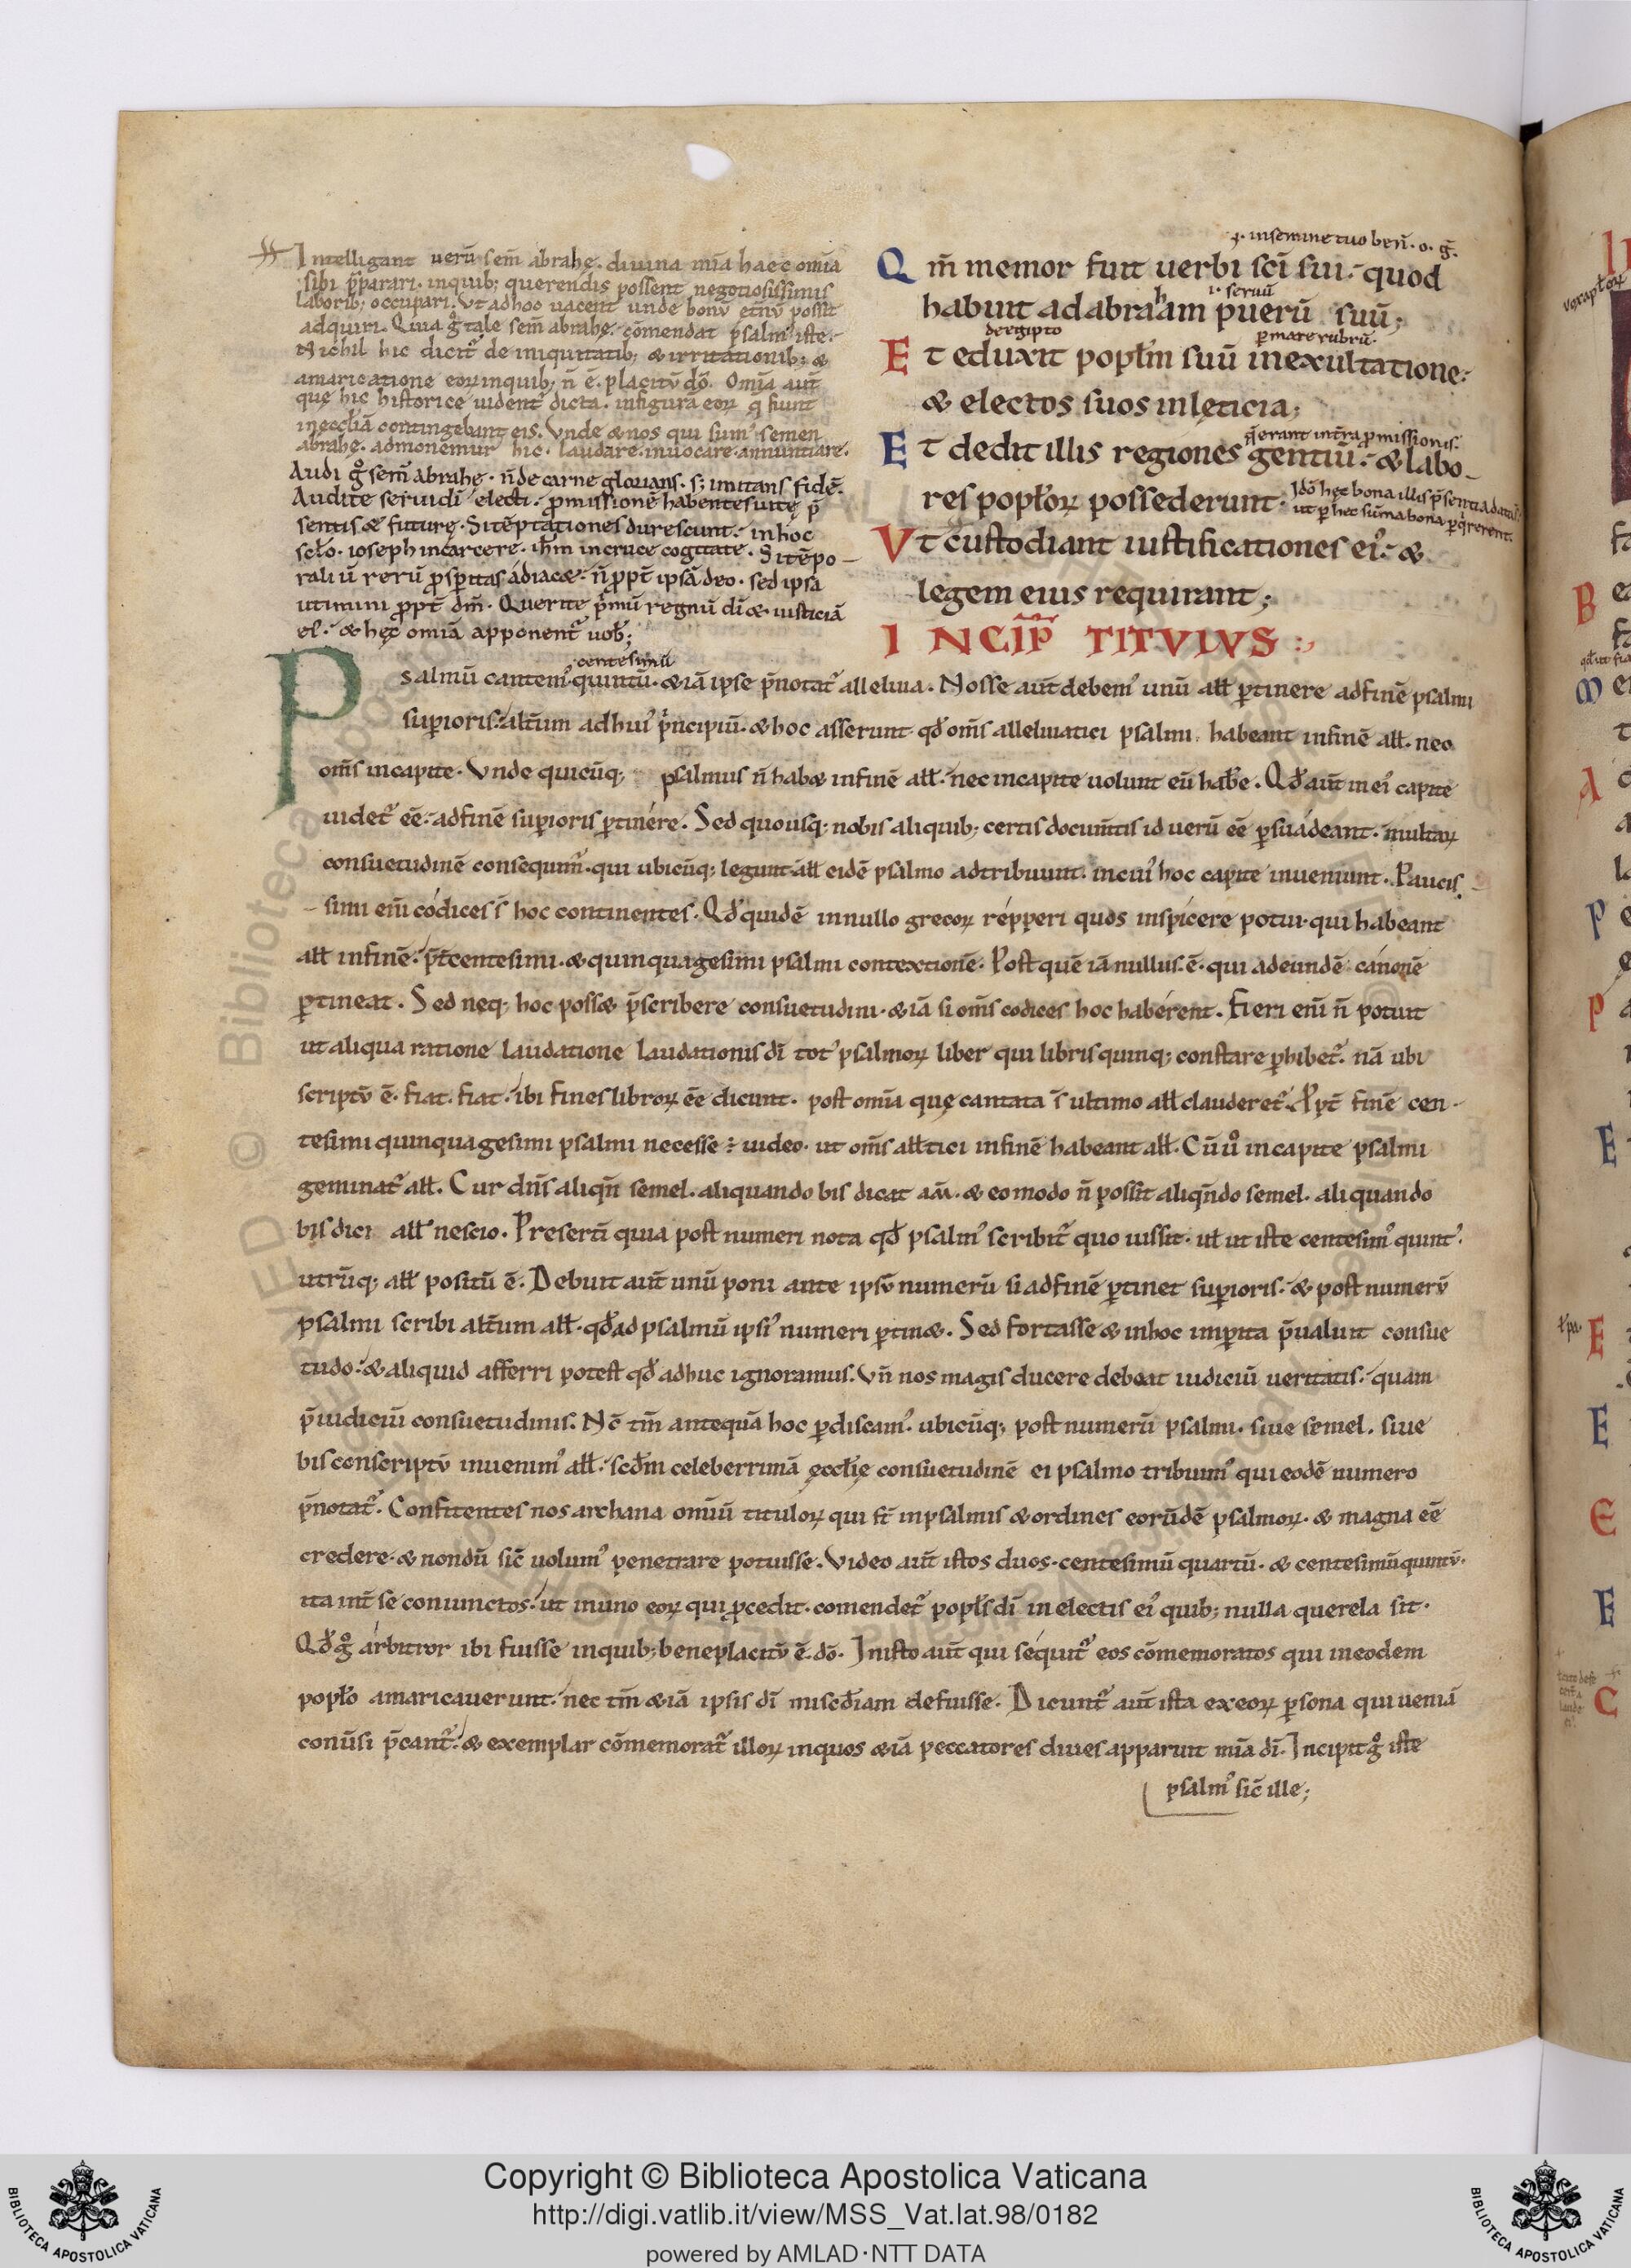 Intelligant uerū sem̄ abrahę. diuina mīa haec omīa
sibi p̄parari. inquib; querendis possent negotiosissimis
laborib; occupari. Vt adhoc uacent unde bonū et̄nū possit
adquiri. Quia gͦ tale sem̄ abrahę. cōmendat psalm᾽ iste.
Nichil hic dicit᷑ de iniquitatib; & irritationib; &
amaricatione eoꝝ inquib; n̄ ē placitū dō. Omīa aut̄
quę hic historice uident᷑ dicta. infigura eoꝝ q̄ fiunt
inecclīa contingebant eis. Vnde & nos qui sum᾽ semen
abrahę. admonemur hic. laudare. inuocare. annuntiare.
Audi gͦ sem̄ abrahę. n̄ de carne glorians. s; imitans fidē.
Audite serui dī electi. ꝓmissionē habentes uitę p̄
sentis & futurę. Si tēptationes durescunt. inhoc
sclo. ioseph incarcere. ihm̄ incruce cogitate. Si tēpo-
raliū rerū ꝓspitas adiac&. n̄ ꝓpt̄ ipsā deo. sed ipsa
utimini ꝓpt̄ dm̄. Querite p̄mū regnū dī & iusticiā
ei᾽. & hęc omīa apponent᷑ uob̄;
.i. insemine tuo ben̄. o. ḡ.
Qm̄ memor fuit uerbi scī sui. quod
i. seruū
habuit ad abraham puerū suū;
de egipto
p mare rubrū.
Et eduxit popl̄m suū inexultatione.
& electos suos inlęticia;
q̄ erant int̄ra ꝓmissionis.
Et dedit illis regiones gentiū. & labo-
res popl̄oꝝ possederunt.
Idō hęc bona illis p̄sentia data
ut p hęc sūma bona pq̇rerent.
Vt custodiant iustificationes ei᾽. &
legem eius requirant;
INCIP̄ TITVLVS
centesimū
Psalmū cantem᾽ quintū. & iā ipse p̄notat᷑ alleluia. Nosse aut̄ debem᾽ unū all̄ ptinere adfinē psalmi
supioris. alt̄um ad hui᾽ p̄ncipiū. & hoc asserunt qd̄ om̄s alleluiatici psalmi habeant infinē all̄. nec
om̄s incapite. Vnde quicūq; psalmus n̄ hab& infinē all̄. nec incapite uolunt eū habe. Qd̄ aut̄ inei᾽ capite
uidet᷑ eē. adfinē supioris ptinére. Sed quousq; nobis aliquib; certis docum̄tis id uerū eē psuádeant. multaꝝ
consuetudinē consequim᷑. qui ubicūq; legunt all̄ eidē psalmo adtribuunt. incui᾽ hoc capite inueniunt. Paucis
simi em̄ códices st̄ hoc continentes. Qd̄ quidē innullo grecoꝝ répperi quos inspícere potui. qui habeant
all̄ infinē. p̄t̄ centesimi. & quinquagesimi psalmi contextionē. Post quē iā nullus ē. qui adeundē cánonē
ptineat. Sed neq; hoc poss& p̄scribere consuetudini. & iā si om̄s codices hoc habérent. Fieri em̄ n̄ potuit
ut aliqua ratione laudatione laudationis dī tot᾽ psalmoꝝ liber qui libris quinq; constare phibet᷑. nā ubi
scriptū ē. fiat. fiat. ibi fines libroꝝ eē dicunt. post omīa quę cantata st̄ ultimo all̄ clauderet᷑. Ppt̄ finē cen-
tesimi quinquagesimi psalmi necesse ÷ uideo. ut om̄s all̄tici infinē habeant all̄. Cū uͦ incapite psalmi
geminat᷑ all̄. Cur dn̄s aliqn̄ semel. aliquando bis dicat am̄. & eo modo n̄ possit aliqn̄do semel. aliquando
bis dici all̄ nescio. Presertī quia post numeri nota qd̄ psalm᾽ scribit᷑ quo iussit. ut̄ ut iste centesim᾽ quint᾽.
utrūq; all̄ positū ē. Debuit aut̄ unū poni ante ipsū numerū si adfinē ptinet supioris. & post numerū
psalmi scribi alt̄um all̄. qd̄ ad psalmū ipsi᾽ numeri ptin&. Sed fortasse & inhoc impita p̄ualuit consue
tudo. & aliquid afferri potest qd̄ adhuc ignoramus. Vn̄ nos magis ducere debeat iudiciū ueritatis. quam
p̄iudiciū consuetudinis. Nc̄ tm̄ antequā hoc pdiscam᾽. ubicūq; post numerū psalmi. siue semel. siue
bis conscriptū inuenim᾽ all̄. scd̄m celeberrimā ęccl̄ię consuetudinē ei psalmo tribuim᾽ qui eodē numero
p̄notat᷑. Confitentes nos archana omīū tituloꝝ qui st̄ inpsalmis & ordines eorūdē psalmoꝝ. & magna eē
credere. & nondū sic̄ uolum᾽ penetrare potuisse. Video aut̄ istos duos. centesimū quartū. & centesimū quintū.
ita int̄ se coniunctos. ut inuno eoꝝ qui p̄cedit. comendet᷑ popl̄s dī in electis ei᾽ quib; nulla querela sit.
Qd̄ gͦ árbitror ibi fuisse inquib; beneplacitū ē dō. Inisto aut̄ qui séquit᷑ eos cōmemoratos qui ineodem
popl̄o amaricauerunt. nec tm̄ & iā ipsis dī misc̄diam defuisse. Dicunt᷑ aut̄ ista exeoꝝ psona qui ueniā
conūsi p̄cant᷑. & exemplar cōmemorat᷑ illoꝝ inquos & iā peccatores diues apparuit mīa dī. Incipit gͦ iste
psalm᾽ sic̄ ille;
Copyright © Biblioteca Apostolica Vaticana
http://digi.vatlib.it/view/MSS_Vat.lat.98/0182
powered by AMLAD·NTT DATA
BIBLIOTECA APOSTOLICA VATICANA
BIBLIOTECA APOSTOLICA VATICANA